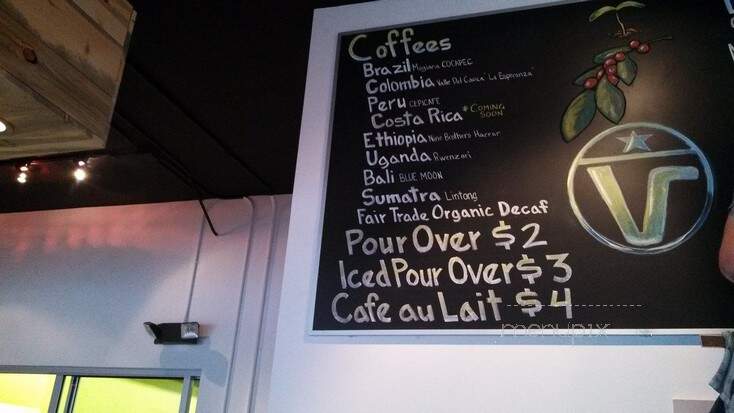 Coffees
Brazil Mogiana COCAPEC
Colombia Valle Del Cauca "La Esperanza"
Peru CEPICAFE
Costa Rica *COMING SOON
Ethiopia Nine Brothers Harrar
Uganda Rwenzori
Bali BLUE MOON
Sumatra Lintong
Fair Trade Organic Decaf
Pour Over $2
Iced Pour Over $3
Cafe au Lait $4
V
menupix